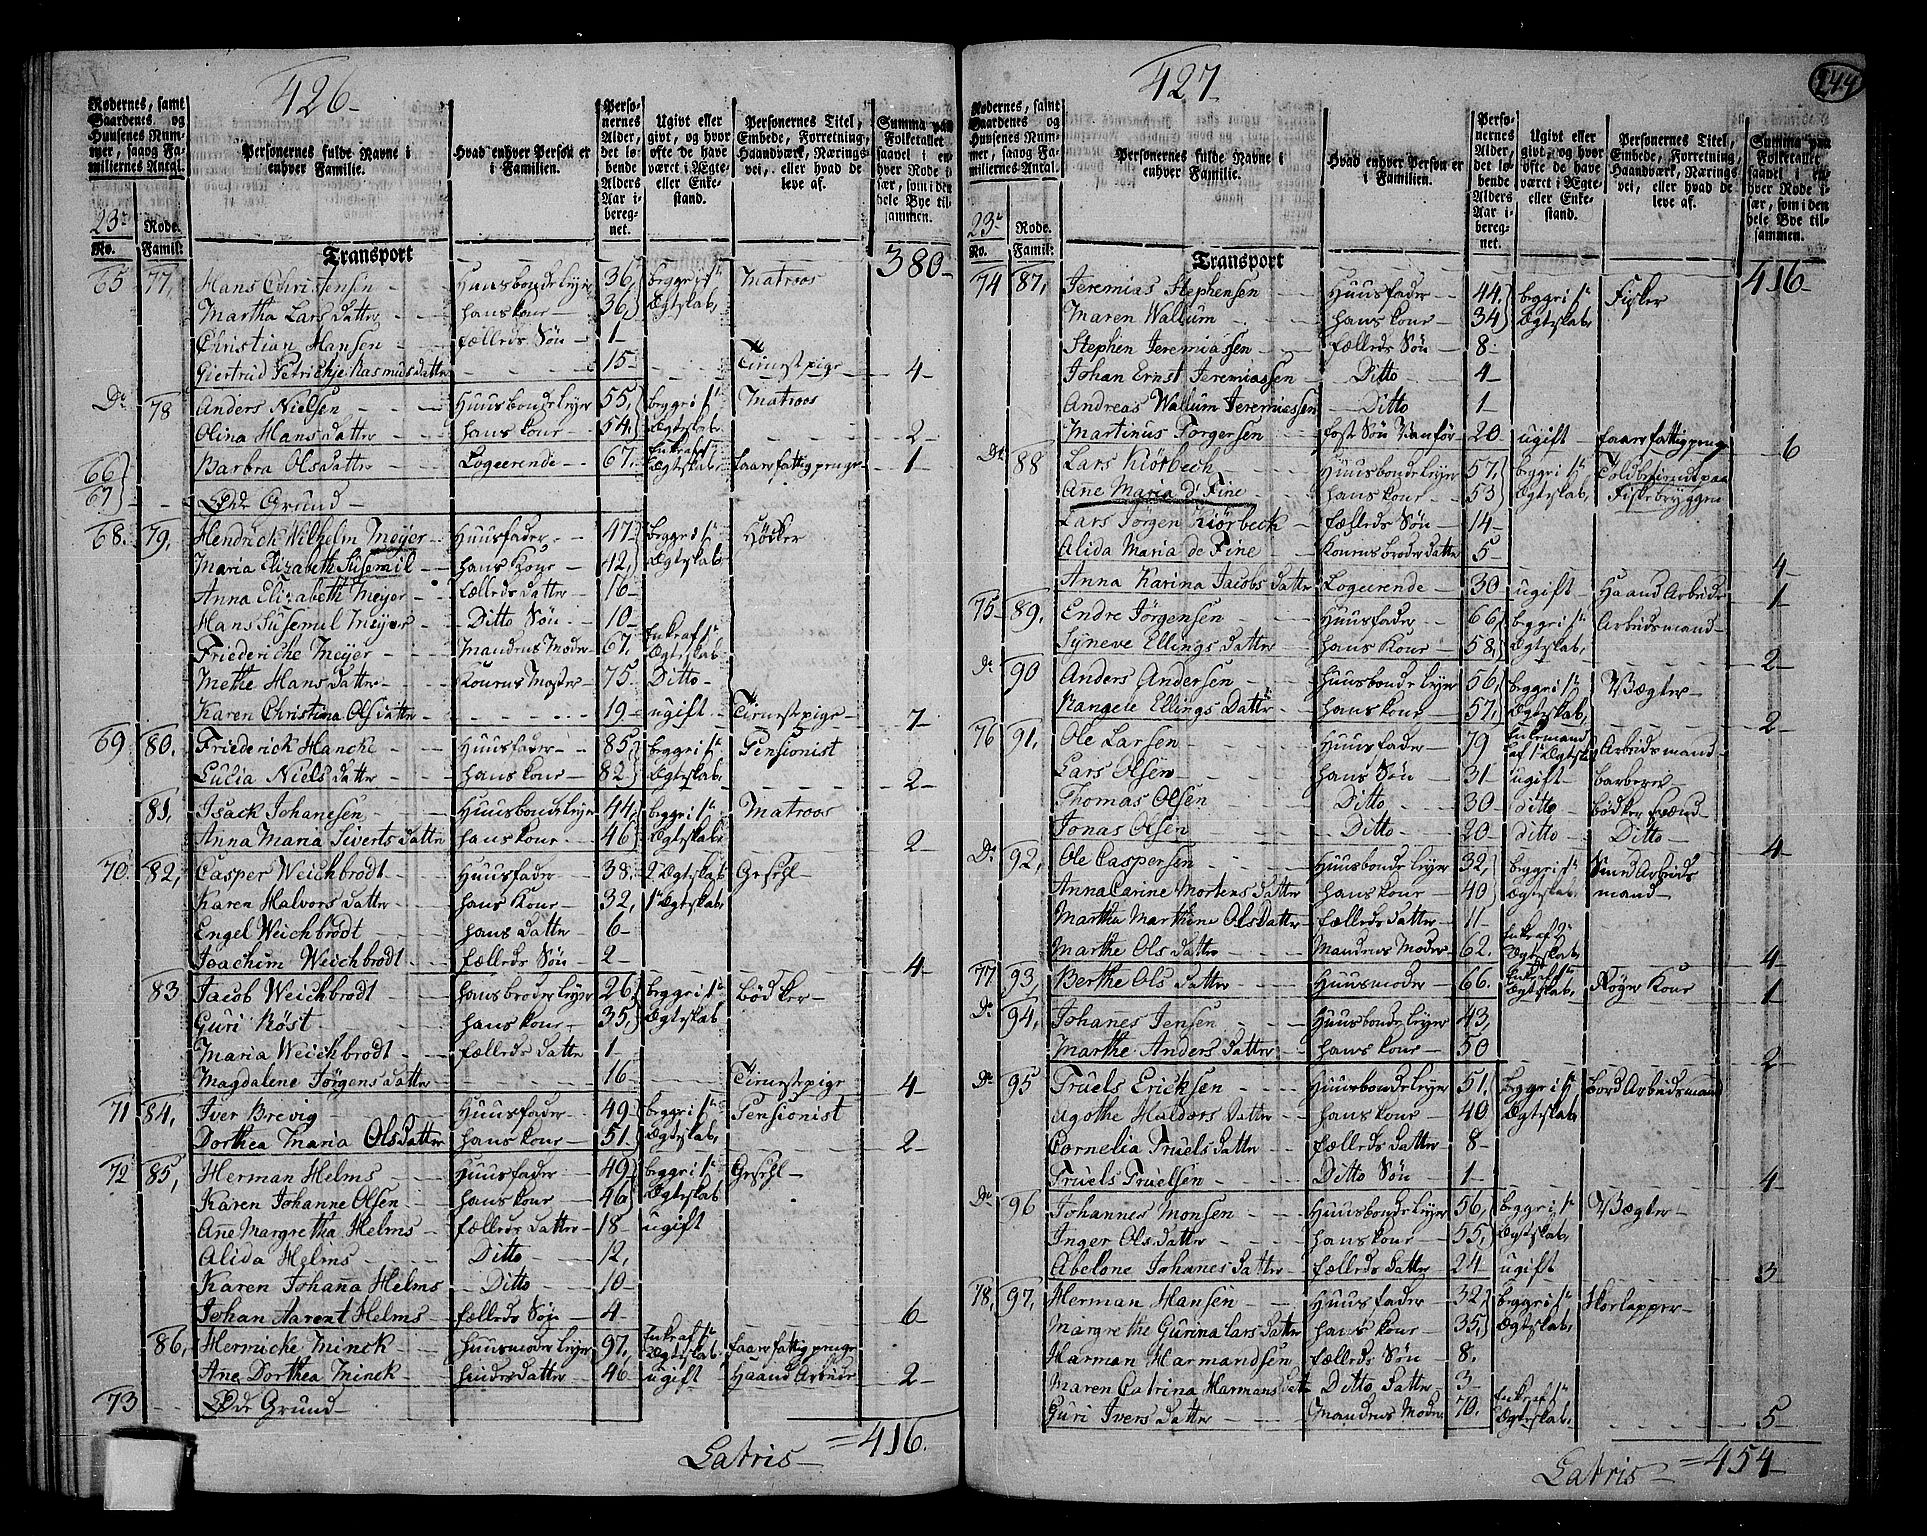 426
Rodernes, samt Gaardenes og Huusenes Nummer, saavog Familiernes Antal.
Personernes fulde Navne i enhver Familie.
Hvad enhver Person er i Familien.
Personernes Alder, det løbende Alders Aar iberegnet.
Ugivt eller givt, og hvor ofte de have været i Ægte- eller Enkestand.
Personernes Titel, Embede, Forretning, Haandværk, Næringsvei, eller hvad de leve af.
Summa paa Folketallet saavel i enhver Rode især, som i den hele Bye tilsammen.
23de Rode.
No. Famil:
Transport 380
65 77, Hans Christensen Huusbonde leyer 36, begge i 1te Matroos
Martha Lars datter hans kone 36, Ægteskab,
Christian Hansen fælleds Søn 1
Giertrud Petrichje Rasmusdatter 15 Tienestepige 4
Do 78 Anders Nielsen Huusbonde leyer 55, begge i 1te Matroos
Olina Hans datter hans kone 54, Ægteskab, 2
Barbra Olsdatter Logeerende 67, Enke af 1te Ægteskab, faaer fattigpenge 1
66 67 Øde Grund
68. 79, Hendrick Wilhelm Meyer Huusfader 47 begge i 1te Høcker
Maria Elizabeth Susemil hans Kone 42, Ægteskab,
Anna Elizabeth Meyer fælleds datter 16
Hans Susemil Meyer Ditto Søn 10
Friederiche Meyer Mandens Moder 67, Enke af 1te Ægteskab
Methe Hans datter Konens Moster 75 Ditto
Karen Christina Olsdatter 19 ugift Tienestepige 7
69 80. Friederick Hancke Huusfader 85, begge i 1te Pensionist
Lucia Niels datter hans kone 82 Ægteskab, 2
81, Isack Johanesen Huusbonde leyer 44, begge i 1te Matroos
Anna Maria Siverts datter hans kone 46 Ægteskab, 2
70. 82, Casper Weichbrodt Huusfader 38, 2de Ægteskab Gesehl
Karen Halvors datter hans Kone 32, 1te Ægteskab,
Engel Weichbrodt hans datter 6
Joachim Weichbrodt fælleds Søn 2 4
83 Jacob Weichbrodt huusbonde leyer 26, begge i 1te bødker
Guri Røst hans kone 35, Ægteskab
Maria Weichbrodt fælleds datter 1
Magdalene Jörgens datter 16 Tienestepige 4
71 84, Iver Brevig Huusfader 49 begge i 1te Pensionist
Dorthea Maria Olsdatter hans kone 51 Ægteskab, 2
72 85, Herman Helms Huusfader 49 begge i 1te Gesehl
Karen Johanne Olsen hans kone 46 Ægteskab
Ane Margretha Helms fælleds datter 18 ugift
Alida Helms Ditto 12,
Karen Johana Helms Ditto 10
Johan Aarent Helms fælleds Søn 4 6
86, Hermiche Minck Huusmoder leyer 97, Enke af 1te Ægteskab, faaer fattigpenge
Ane Dorthea Minck hindes datter 46 ugift Haand Arbeide 2
73 Øde Grund
Latris = 416.
427
244
Rodernes, samt Gaardenes og Huusenes Nummer, saavog Familiernes Antal.
Personernes fulde Navne i enhver Familie.
Hvad enhver Person er i Familien.
Personernes Alder, det løbende Alders Aar iberegnet.
Ugivt eller givt, og hvor ofte de have været i Ægte- eller Enkestand.
Personernes Titel, Embede, Forretning, Haandværk, Næringsvei, eller hvad de leve af.
Summa paa Folketallet saavel i enhver Rode især, som i den hele Bye tilsammen.
23de Rode.
No. Famil:
Transport 416
74 87, Jeremias Stephensen Huusfader 44, begge i 1te Fisker
Maren Wallum hans kone 34 Ægteskab
Stephen Jeremiassen fælleds Søn 8
Johan Ernst Jeremiassen Ditto 4
Andreas Wallum Jeremiassen Ditto 1
Martinus Torgersen foster Søn Vanför 20 ugift faaer fattigpenge 6
Do 88 Lars Kiörbech Huusbonde leyer 57, begge i 1te Toldbetient paa
Ane Maria de Fine hans kone 53 Ægteskab, Fiskebryggen
Lars Jörgen Kiörbeck fælleds Søn 14
Alida Maria de Fine Konens broder datter 5 4
Anna Karina Jacobs datter Logeerende 30 ugift Haand Arbeide 1
75 89. Endre Jörgensen Huusfader 66 begge i 1te Arbeidsmand
Syneve Ellings datter hans Kone 58, Ægteskab, 2
Do 90 Anders Andersen Huusbonde leyer 56, begge i 1te Vægter
Rangele Ellings Datter hans kone 57, Ægteskab, 2
76 91, Ole Larsen Huusfader 79 Enkemand af 1te Ægteskab Arbeidsmand
Lars Olsen hans Søn 31 ugift barberer
Thomas Olsen Ditto 30 ditto bødker svend
Jonas Olsen Ditto 20 ditto Ditto 4
Do 92, Ole Caspersen Huusbonde leyer 32, begge i 1te
Anna Carine Mortens datter hans kone 40 Ægteskab, mand
Martha Marthine Olsdatter fælleds datter 11
Marthe Ols datter Mandens Moder 62. Enke af 2de Ægteskab, 4
77 93, Berthe Ols datter Huusmoder 66. Enke af 1te Ægteskab, Røger Kone 1
Do 94, Johanes Jensen Huusbonde leyer 43,
Marthe Anders datter hans kone 50 2
Do 95 Truels Ericksen Huusbonde leyer 51, begge i 1te bord Arbeidsmand
Agothe Haldors datter hans kone 40 Ægteskab
Cornelia Truels datter fælleds datter 8
Truels Truelsen Ditto Søn 1 4
Do 96 Johannes Monsen Huusbonde leyer 56, begge i 1te Vægter
Inger Olsdatter hans kone 55, Ægteskab,
Abelone Johanes datter fælleds datter 24 ugift 3
78, 97, Herman Hansen Huusfader 32, begge i 1te Skoelapper
Margrethe Gurina Lars datter hans kone 35, Ægteskab,
Harman Harmandsen fælleds Søn 8.
Maren Catrina Harmans datter Ditto datter 3
Guri Ivers datter Mandens Moder 70. Enke af 1te Ægteskab, 5
Latris = 454